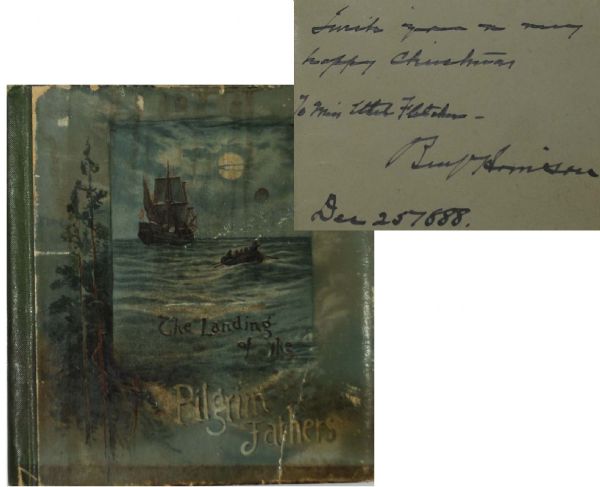 I wish you a very
happy Christmas
To Miss Ethel Fletcher -
Benj Harrison
Dec 25 1888.
The Landing
of the
Pilgrim
Fathers